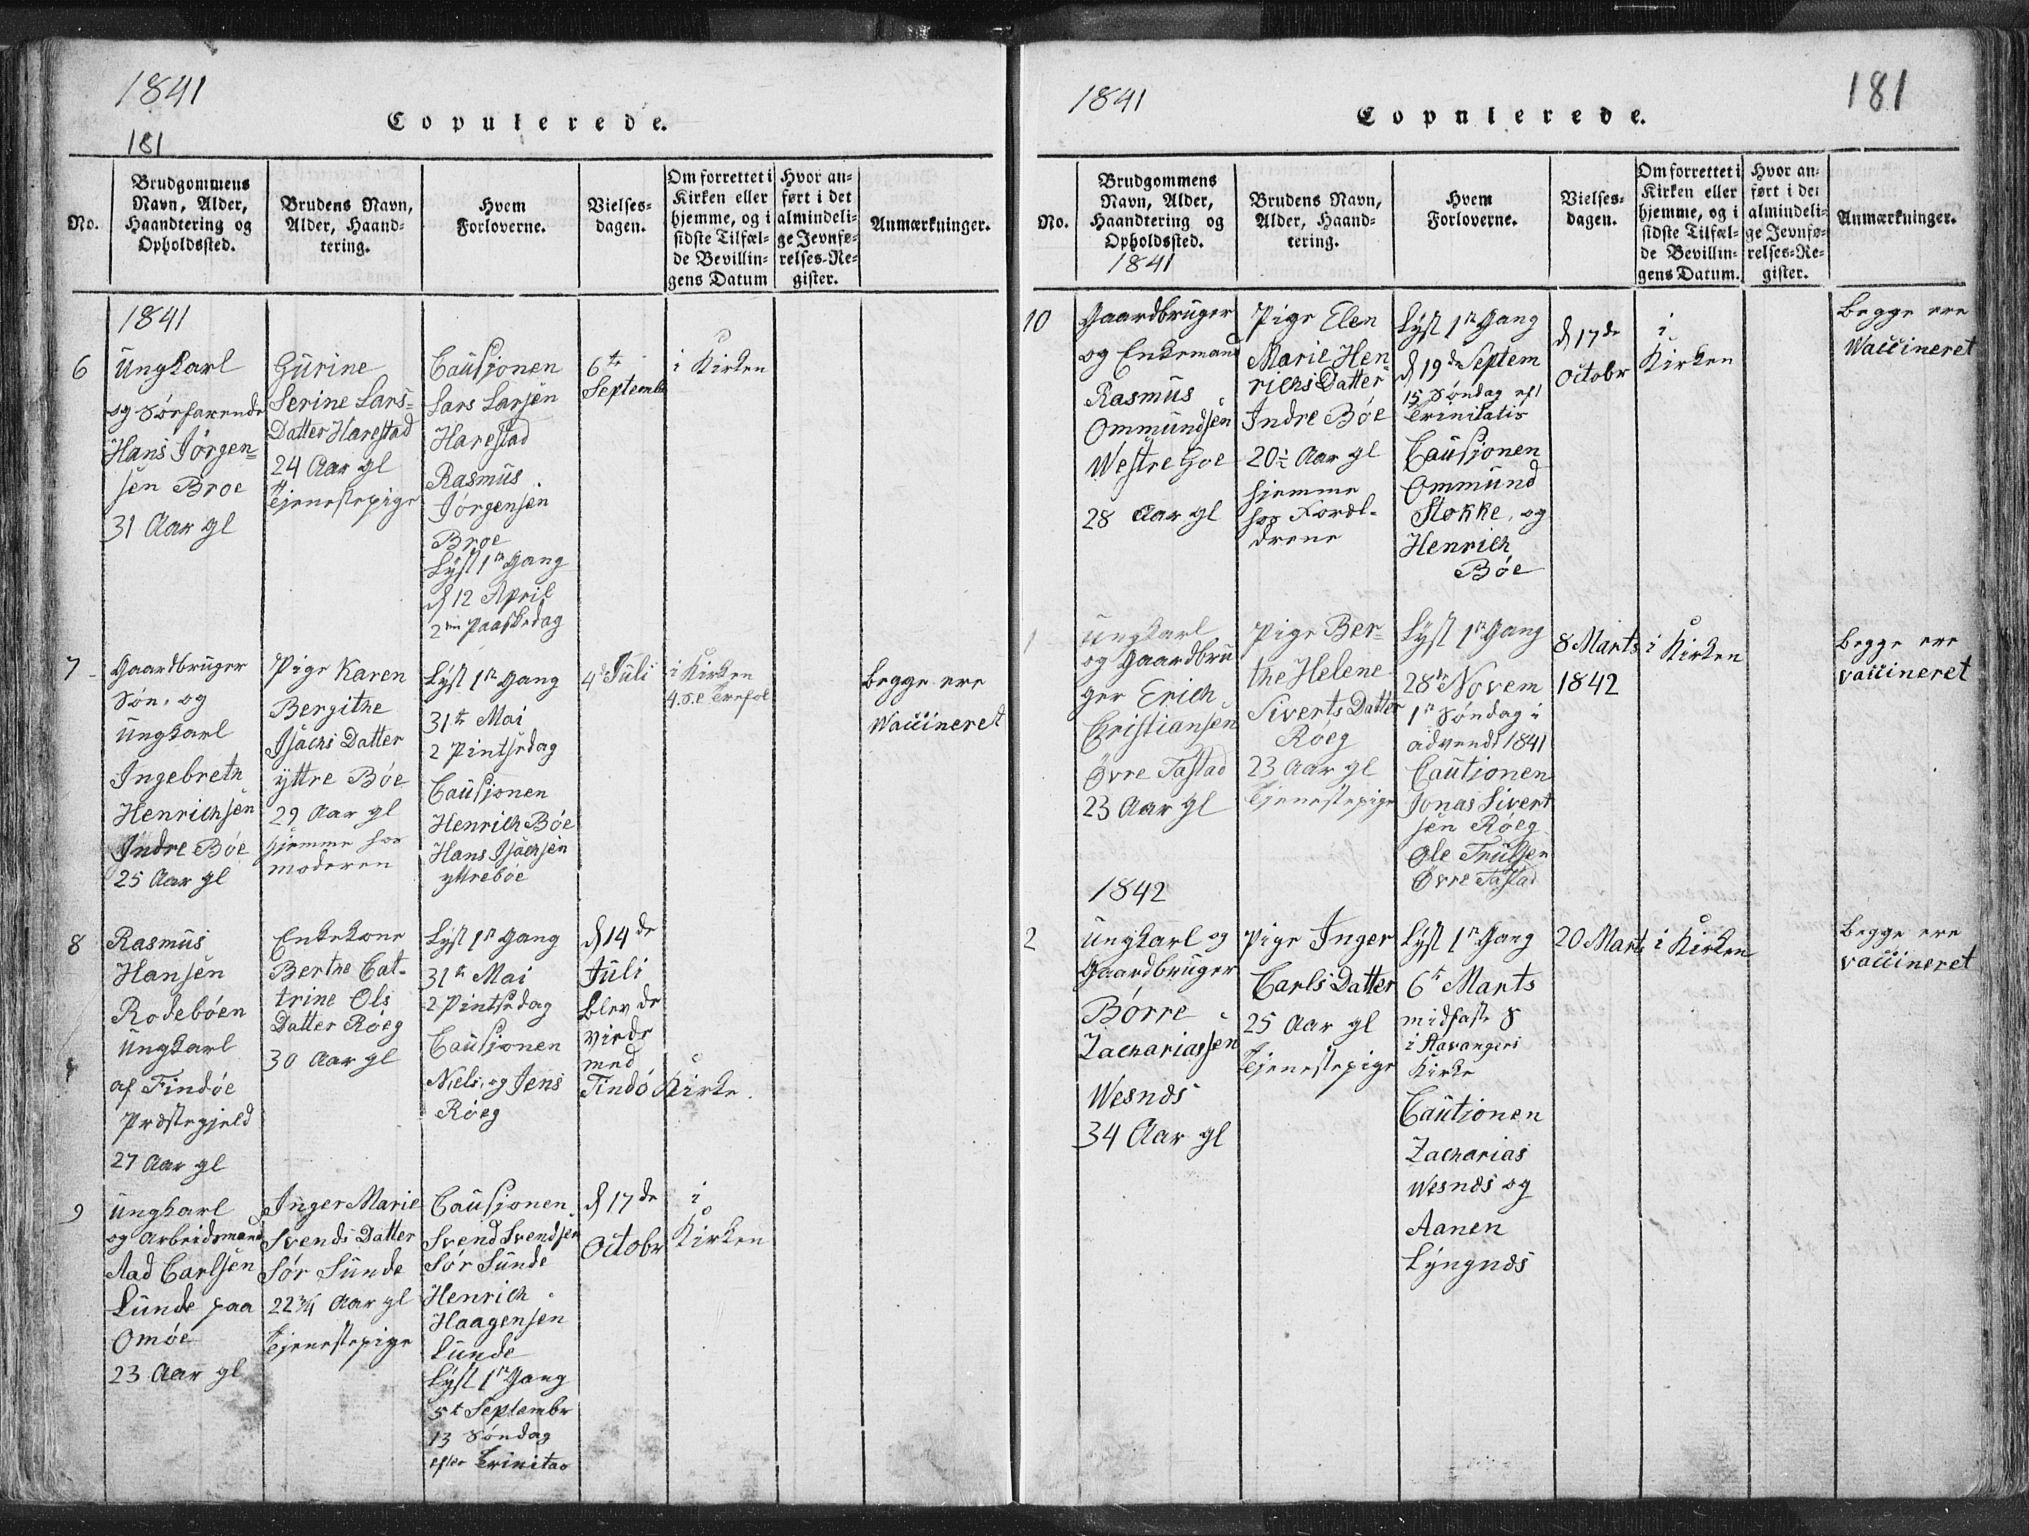 1841
181
Copulerede.
No.
Brudgommens
Navn, Alder,
Haandtering og
Opholdssted.
Brudens Navn,
Alder, Haand-
tering.
Hvem
Forloverne.
Vielses-
dagen.
Om forrettet i
Kirken eller
hjemme, og i
sidste Tilfæl-
de Bevillin-
gens Datum
Hvor an-
ført i det
almindeli-
ge Jevnfø-
relses-Re-
gister.
Anmærkninger.
1841
6
Ungkarl
og Søefarende
Hans Jörgen=
sen Broe
31 Aar gl
Gurine
Serine Lars=
Datter Harestad
24 Aar gl
Tjenestepige
Causionen
Lars Larsen
Harestad
Rasmus
Jörgensen
Broe
Lyst 1ste Gang
d 12 April
2den Paaskedag
6te
Septembr
i Kirken
7
Gaardbruger
Søn, og
Ungkarl
Ingebreth
Henrichsen
Indre Böe
25 Aar gl
Pige Karen
Bergithe
Isachs Datter
yttre Böe
29 Aar gl
hjemme hos
moderen
Lyst 1ste Gang
31te Mai
2 Pintsedag
Causionen
Henrich Böe
Hans Isachsen
yttreböe
4de Juli
i Kirken
4. S. e Trefol
Begge ere
Waccineret
8
Rasmus
Hansen
Rodeböen
Ungkarl
af Findöe
Præstegjeld
27 Aar gl
Enkekone
Berthe Cat-
trine Ols
Datter Röeg
30 Aar gl
Lyst 1ste Gang
31te Mai
2 Pintsedag
Causionen
Niels og Jens
Röeg
d 14de
Juli
blev de
viede
med
Findö Kirke.
9
Ungkarl
og Arbeidsmand
Aad Carlsen
Lunde paa
Omöe
23 Aar gl
Inger Marie
Svends Datter
Sör Sunde
22 3/4 Aar gl
Tjenestepige
Causionen
Svend Svendsen
Sör Sunde
Henrich
Haagensen
Lunde
Lyst 1ste Gang
5t Septembr
13 Söndag
efter Trinitas
d 17de
Octobr
i
Kirken
1841
181
Copulerede.
No.
Brudgommens
Navn, Alder,
Haandtering og
Opholdssted.
1841
Brudens Navn,
Alder, Haand-
tering.
Hvem
Forloverne.
Vielses-
dagen.
Om forrettet i
Kirken eller
hjemme, og i
sidste Tilfæl-
de Bevillin-
gens Datum.
Hvor an-
ført i det
almindeli-
ge Jevnfø-
relses-Re-
gister.
Anmærkninger.
10
Gaardbruger
og Enkemand
Rasmus
Ommundsen
Westre Goe
28 Aar gl
Pige Elen
Marie Hen
richs Datter
Indre Böe
20½ Aar gl
hjemme
hos Foræl-
drene
Lyst 1ste Gang
d 19de Septem
15 Söndag eft
Trinitatis
Causionen
Ommund
Stokke, og
Henrich
Böe
d 17de
Octobr
i
Kirken
Begge ere
Waccineret
1
Ungkarl
og Gaardbru
ger Erich
Cristiansen
Övre Tastad
23 Aar gl
Pige Ber=
the Helene
Siverts Datter
Röeg
23 Aar gl
Tjenestepige
Lyst 1ste Gang
28de Novem
1ste Söndag i
advendt 1841
Cautionen
Jonas Sivert
sen Röeg
Ole Trulsen
Övre Tastad
8 Marts
1842
i Kirken
Begge ere
vaccineret
1842
2
Ungkarl og
Gaardbruger
Börre
Zachariassen
Wesnæs
34 Aar gl
Pige Inger
Carls Datter
25 Aar gl
Tjenestepige
Lyst 1ste Gang
6te Marts
midfaste S
i Stavangers
Kirke
Cautionen
Zacharias
Wesnæs og
Aanen
Lyngnæs
20 Marts
i Kirken
Begge ere
vaccineret